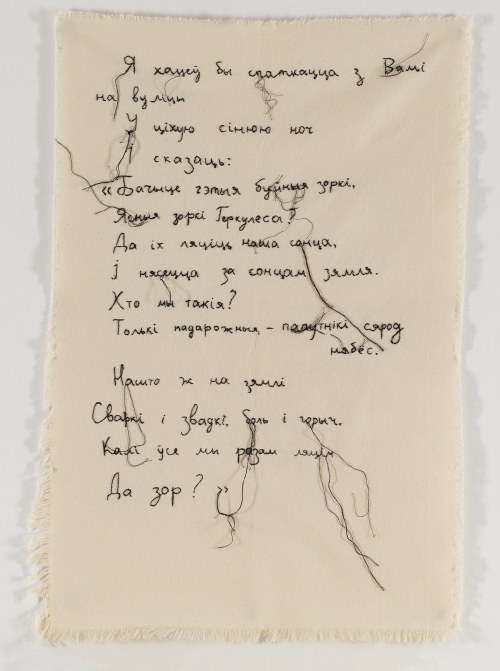 Я хацеў бы спаткацца з Вамі
на вуліцы
У ціхую сінюю ноч
І сказаць:
«Бачыце гэтыя буйныя зоркі,
Ясныя зоркі Геркулеса?
Да іх ляціць наша сонца,
І нясецца за сонцам зямля.
Хто мы такія?
Толькі падарожныя, – папутнікі сярод
нябёс.
Нашто ж на зямлі
Сваркі і звадкі, боль і горыч,
Калі ўсе мы разам ляцім
Да зор? »